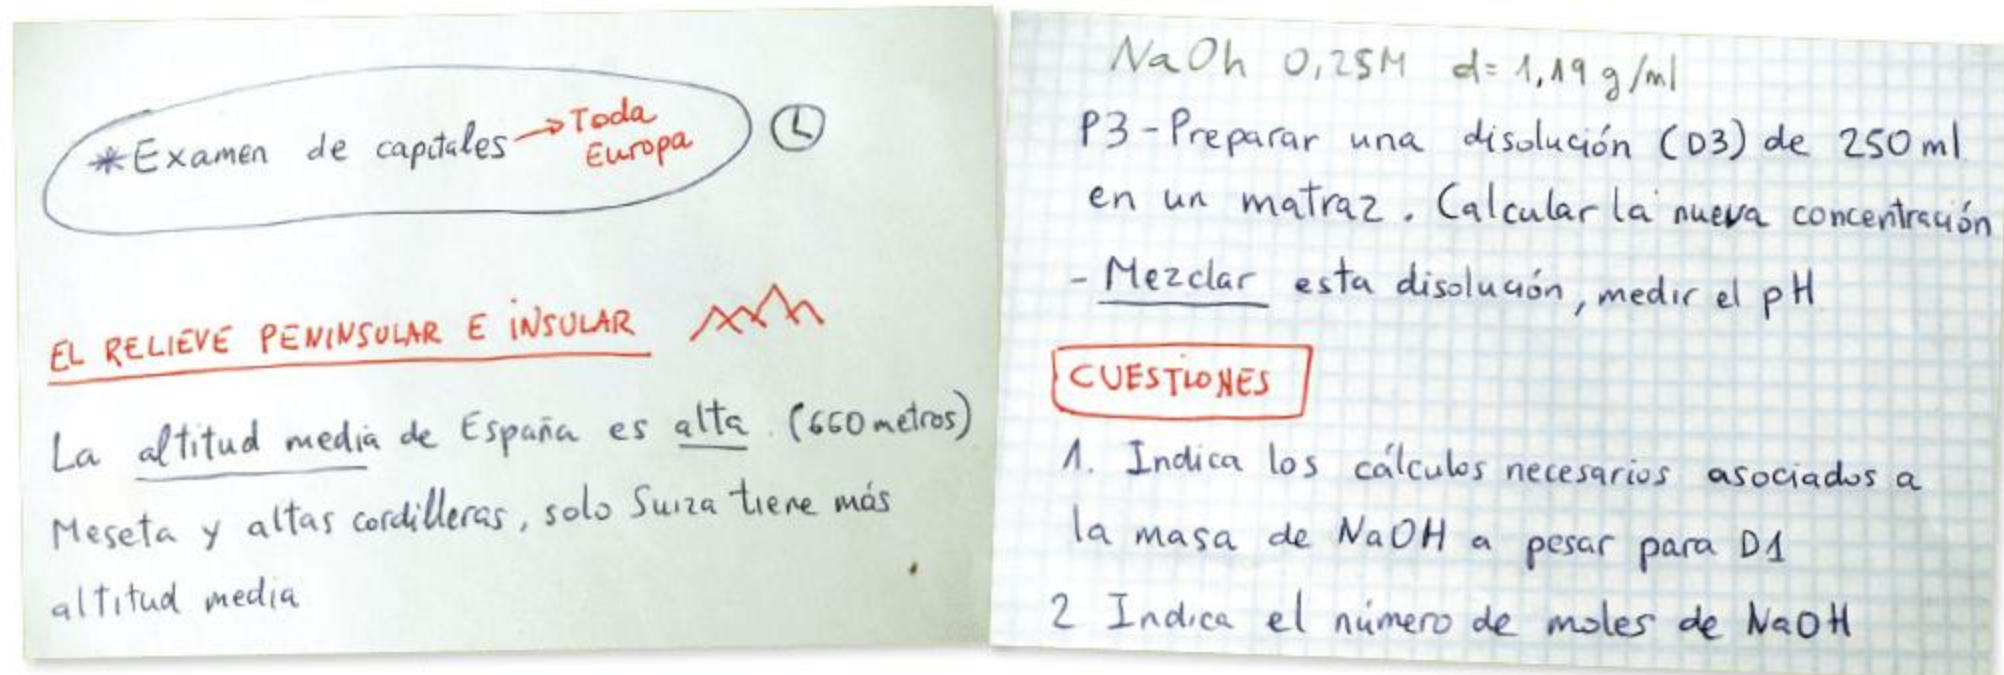 *Examen de capitales → Toda
Europa
EL RELIEVE PENINSULAR E INSULAR
La altitud media de España es alta. (660 metros)
Meseta y altas cordilleras, solo Suiza tiene más
altitud media
NaOh 0,25M d= 1,19 g/ml
P3-Preparar una disolución (D3) de 250 ml
en un matraz. Calcular la nueva concentración
- Mezclar esta disolución, medir el pH
CUESTIONES
1. Indica los cálculos necesarios asociados a
la masa de NaOH a pesar para D1
2 Indica el número de moles de NaOH